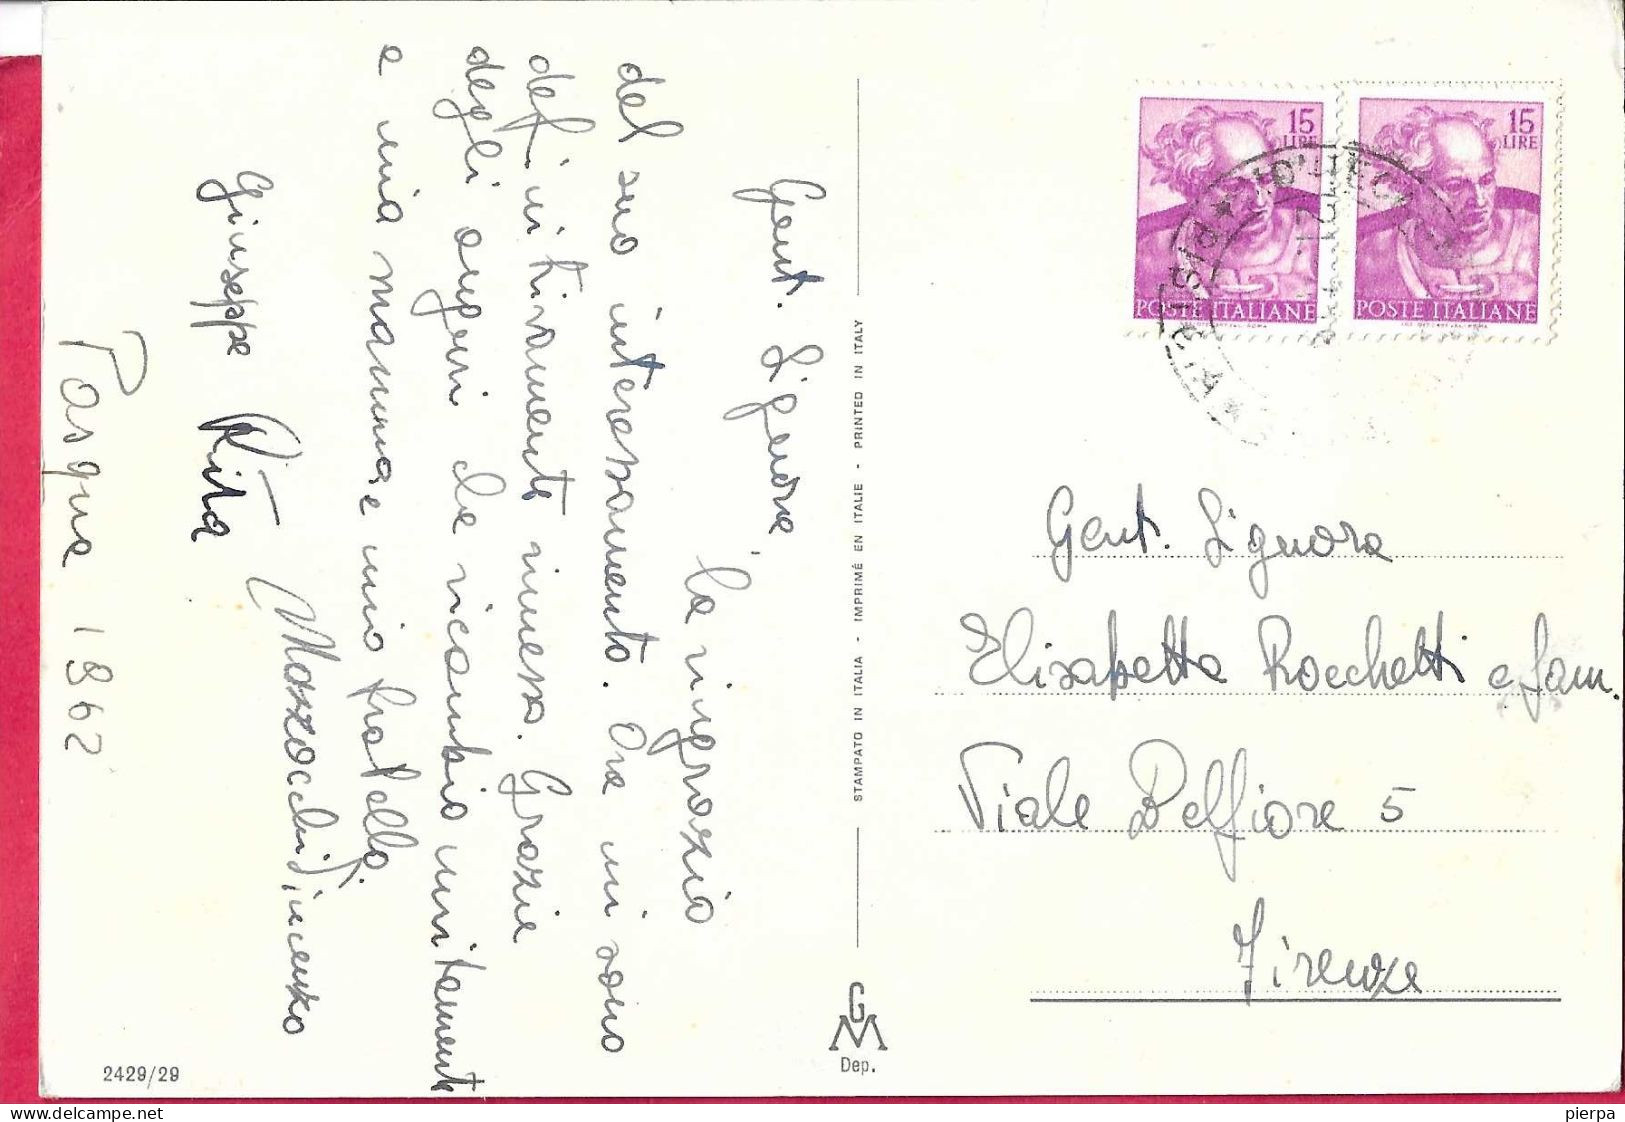 Gent. Signora,
la ringrazio
del suo interessamento. Ora mi sono
definitivamente rimesso. Grazie
degli auguri che ricambio unitamente
a mia mamma e mio fratello.
Mazzocchi Vincenzo
Giuseppe Rita
Pasqua 1962
2429/29
STAMPATO IN ITALIA - IMPRIMÉ EN ITALIE - PRINTED IN ITALY
GM
Dep.
15 LIRE
POSTE ITALIANE
15 LIRE
POSTE ITALIANE
Gent. Signora
Elisabetta Rocchetti e fam.
Viale Belfiore 5
Firenze
pierpa